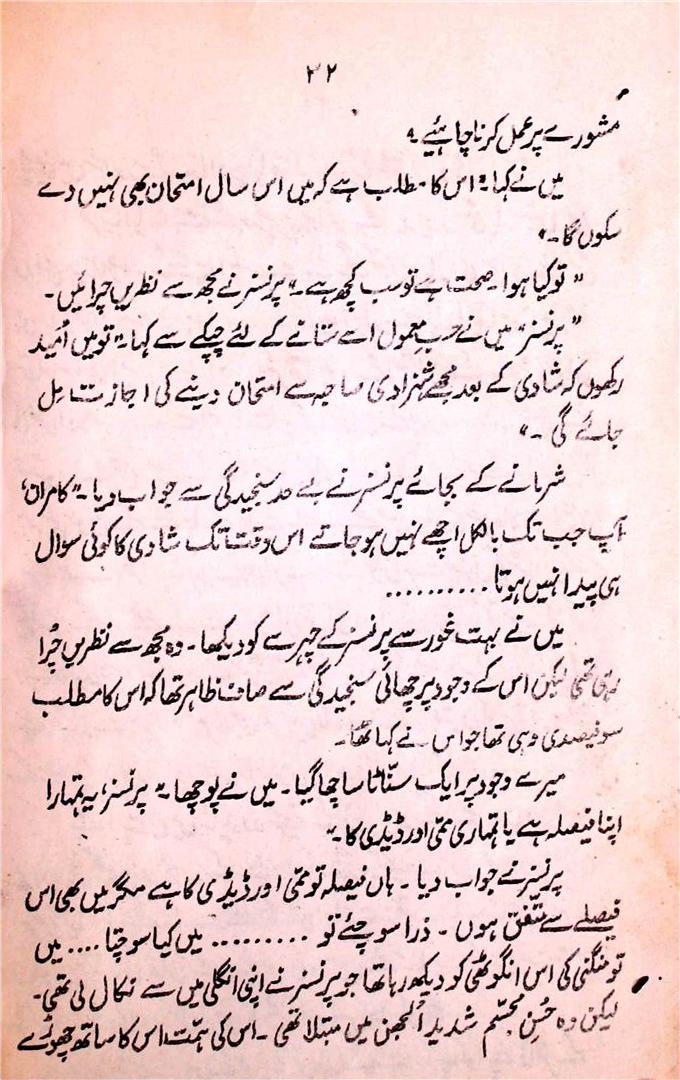 ۳۲
مشورے پر عمل کرنا چاہئیے۔"
میں نے کہا۔" اس کا مطلب ہے کہ میں اس سال امتحان بھی نہیں دے
سکوں گا۔"
" تو کیا ہوا۔ صحت ہے تو سب کچھ ہے۔" پرنسز نے مجھ سے نظریں چرائیں۔
" پرنسز" میں نے حسبِ معمول اسے ستانے کے لئے چپکے سے کہا۔" تو میں اُمید
رکھوں کہ شادی کے بعد مجھے شہزادی صاحبہ سے امتحان دینے کی اجازت مِل
جائے گی۔"
شرمانے کے بجائے پرنسز نے بے حد سنجیدگی سے جواب دیا۔" کامران،
آپ جب تک بالکل اچھے نہیں ہو جاتے اس وقت تک شادی کا کوئی سوال
ہی پیدا نہیں ہوتا..........
میں نے بہت غور سے پرنسز کے چہرے کو دیکھا۔ وہ مجھ سے نظریں چُرا
رہی تھی لیکن اس کے وجود پر چھائی سنجیدگی سے صاف ظاہر تھا کہ اس کا مطلب
سو فیصدی وہی تھا جو اس نے کہا تھا۔
میرے وجود پر ایک سنّاٹا سا چھا گیا۔ میں نے پوچھا۔" پرنسز، یہ تمہارا
اپنا فیصلہ ہے یا تمہاری ممّی اور ڈیڈی کا۔"
پرنسز نے جواب دیا۔ ہاں فیصلہ تو ممّی اور ڈیڈی کا ہے مگر میں بھی اس
فیصلے سے متّفق ہوں۔ ذرا سوچئے تو ......... میں کیا سوچتا .... میں
تو منگنی کی اس انگوٹھی کو دیکھ رہا تھا جو پرنسز نے اپنی انگلی میں سے نکال لی تھی۔
لیکن وہ حُسنِ مجسّم شدید اُلجھن میں مبتلا تھی۔ اس کی ہمّت اس کا ساتھ چھوڑے